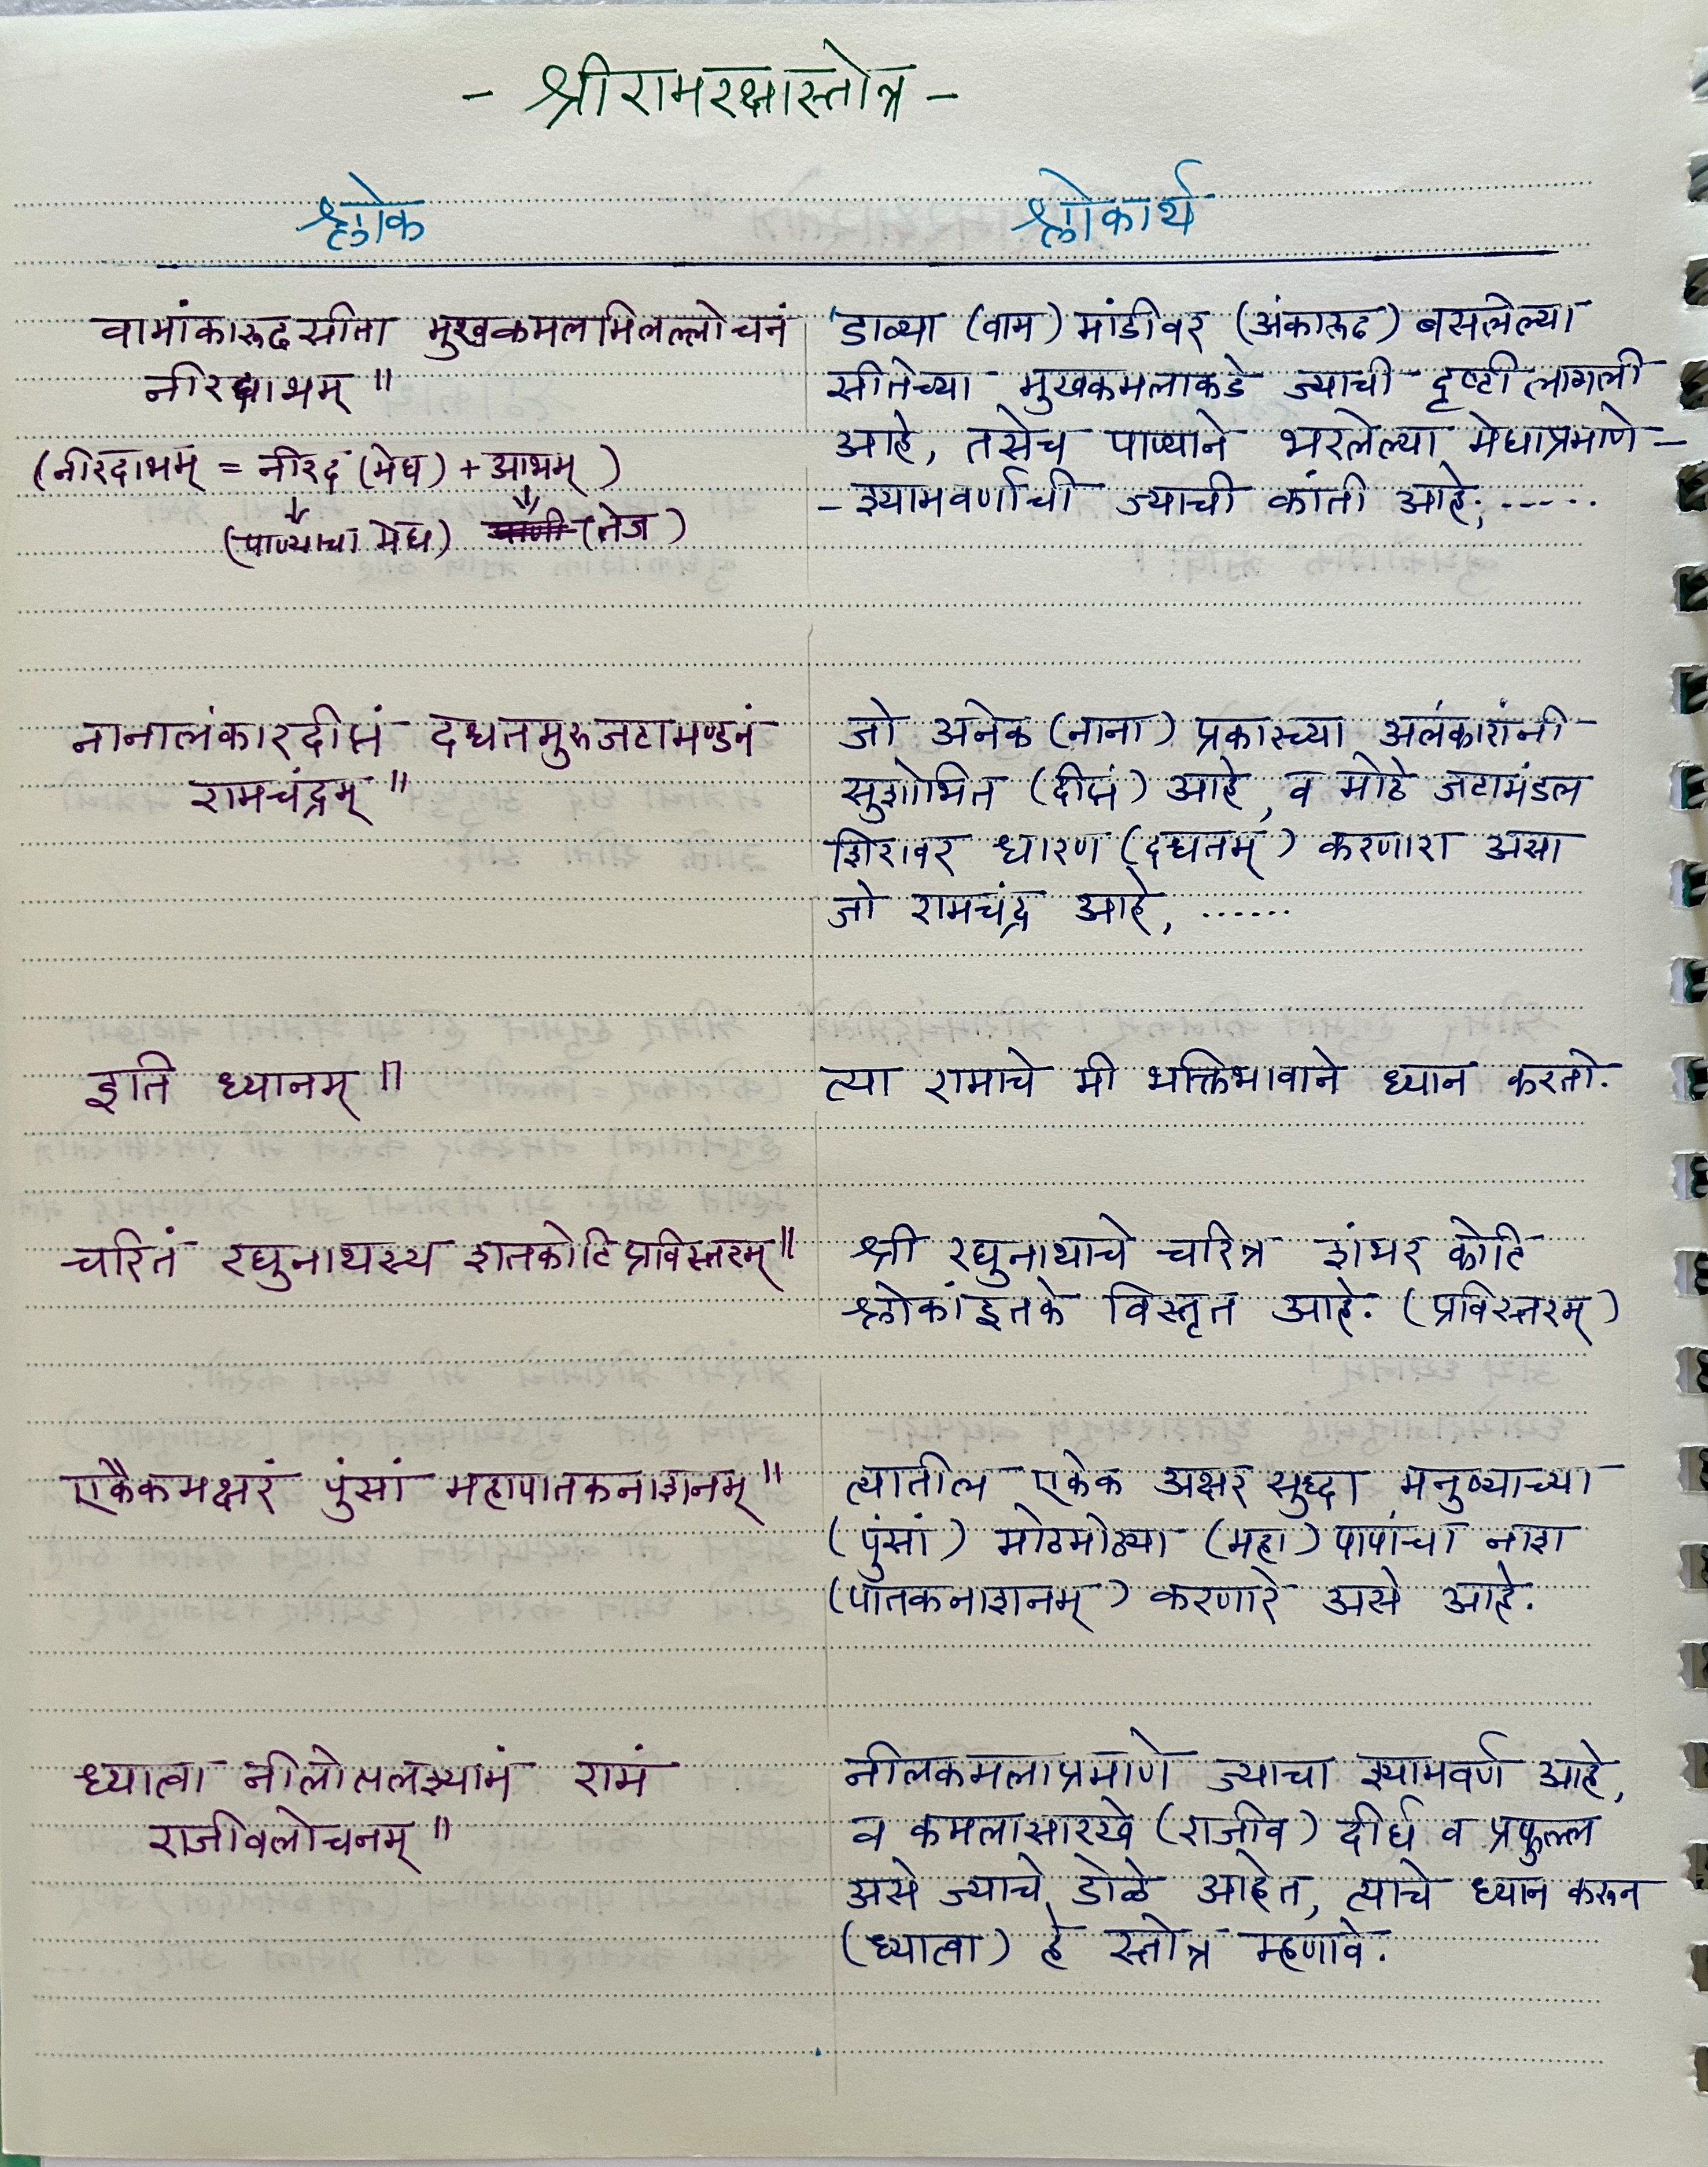 - श्रीरामरक्षास्तोत्र -
श्लोक
श्लोकार्थ
वामांकारुढसीता मुखकमलमिलल्लोचनं
नीरदाभम् ॥
(नीरदाभम् = नीरद (मेघ) + आभम्)
(पाण्याचा मेघ) (तेज)
डाव्या (वाम) मांडीवर (अंकारुढ) बसलेल्या
सीतेच्या मुखकमलाकडे ज्याची दृष्टी लागली
आहे, तसेच पाण्याने भरलेल्या मेघाप्रमाणे -
- श्यामवर्णाची ज्याची कांती आहे; .....
नानालंकारदीप्तं दधतमुरुजटामण्डनं
रामचंद्रम् ॥
जो अनेक (नाना) प्रकारच्या अलंकारांनी
सुशोभित (दीप्तं) आहे, व मोठे जटामंडल
शिरावर धारण (दधतम्) करणारा असा
जो रामचंद्र आहे, ......
इति ध्यानम् ॥
त्या रामाचे मी भक्तिभावाने ध्यान करतो.
चरितं रघुनाथस्य शतकोटि प्रविस्तरम् ॥
श्री रघुनाथाचे चरित्र शंभर कोटि
श्लोकांइतके विस्तृत आहे. (प्रविस्तरम्)
एकैकमक्षरं पुंसां महापातकनाशनम् ॥
त्यातील एकेक अक्षर सुद्धा मनुष्याच्या
(पुंसां) मोठमोठ्या (महा) पापांचा नाश
(पातकनाशनम्) करणारे असे आहे.
ध्यात्वा नीलोत्पलश्यामं रामं
राजीवलोचनम् ॥
नीलकमलाप्रमाणे ज्याचा श्यामवर्ण आहे,
व कमलासारखे (राजीव) दीर्घ व प्रफुल्ल
असे ज्याचे डोळे आहेत, त्याचे ध्यान करुन
(ध्यात्वा) हे स्तोत्र म्हणावे.